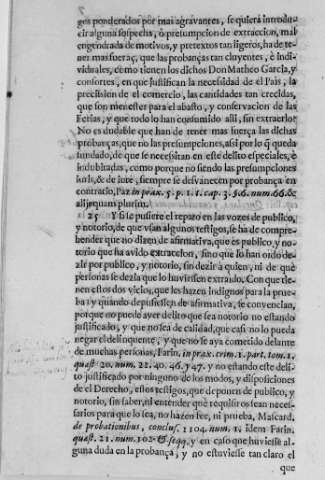 gos ponderados por mai agravantes, se quiera introdu-
cir alguna sospecha, ò presumpcion de extraccion, mal
engendrada de motivos, y pretextos tan ligeros, ha de te-
ner mas fuerça, que las probanças tan cluyentes, è indi-
viduales, como tienen los dichos Don Matheo Garcia, y
consortes, en que justifican la necesidad de el Pais, la
precision de el comercio, las cantidades tan crecidas,
que son menester para el abasto, y conservacion de las
Ferias, y que todo lo han consumido alli, sin extraerlo:
No es dudable que han de tener mas fuerça las dichas
probanças, que no las presumpciones, assi por lo q̃ queda
fundado, de que se necessitan en este delito especiales, è
indubitadas, como porque no siendo las presumpciones
iuris, & de iure, siempre se desvanecen por probança en
contrario, Paz in prax. 5. p. 1. t. cap. 3. §. 6. num. 66. &
alij equam plurimi.
25 Y si se pusiere el reparo en las vozes de publico,
y notorio, de que vsan algunos testigos, se ha de compre-
hender que no dizen de afirmativa, que es publico, y no-
torio que ha avido extraccion, sino que lo han oido de-
zir por publico, y notorio, sin dezir à quien, ni de què
personas se dezia que lo huviessen extraido. Con que tie-
nen estos dos vicios, que les hazen indignos para la prue-
ba: y quando depusiessen de afirmativa, se convencian,
porque no puede aver delito que sea notorio no estando
justificado, y que no sea de calidad, que casi no lo pueda
negar el delinquente, y que no se aya cometido delante
de muchas personas, Farin. in prax. crim. 1. part. tom. 1.
quæst. 20. num. 22. 40. 46. y 47. y no estando este deli-
to justificado por ninguno de los modos, y disposiciones
de el Derecho, estos testigos, que deponen de publico, y
notorio, sin saber, ni entender què requisitos sean neces-
sarios para que lo sea, no hazen fee, ni prueba, Mascard.
de probationibus, conclus. 1104. num. 1. idem Farin.
quæst. 21. num. 102. & seqq. y en caso que huviesse al-
guna duda en la probança, y no estuviesse tan claro el
que